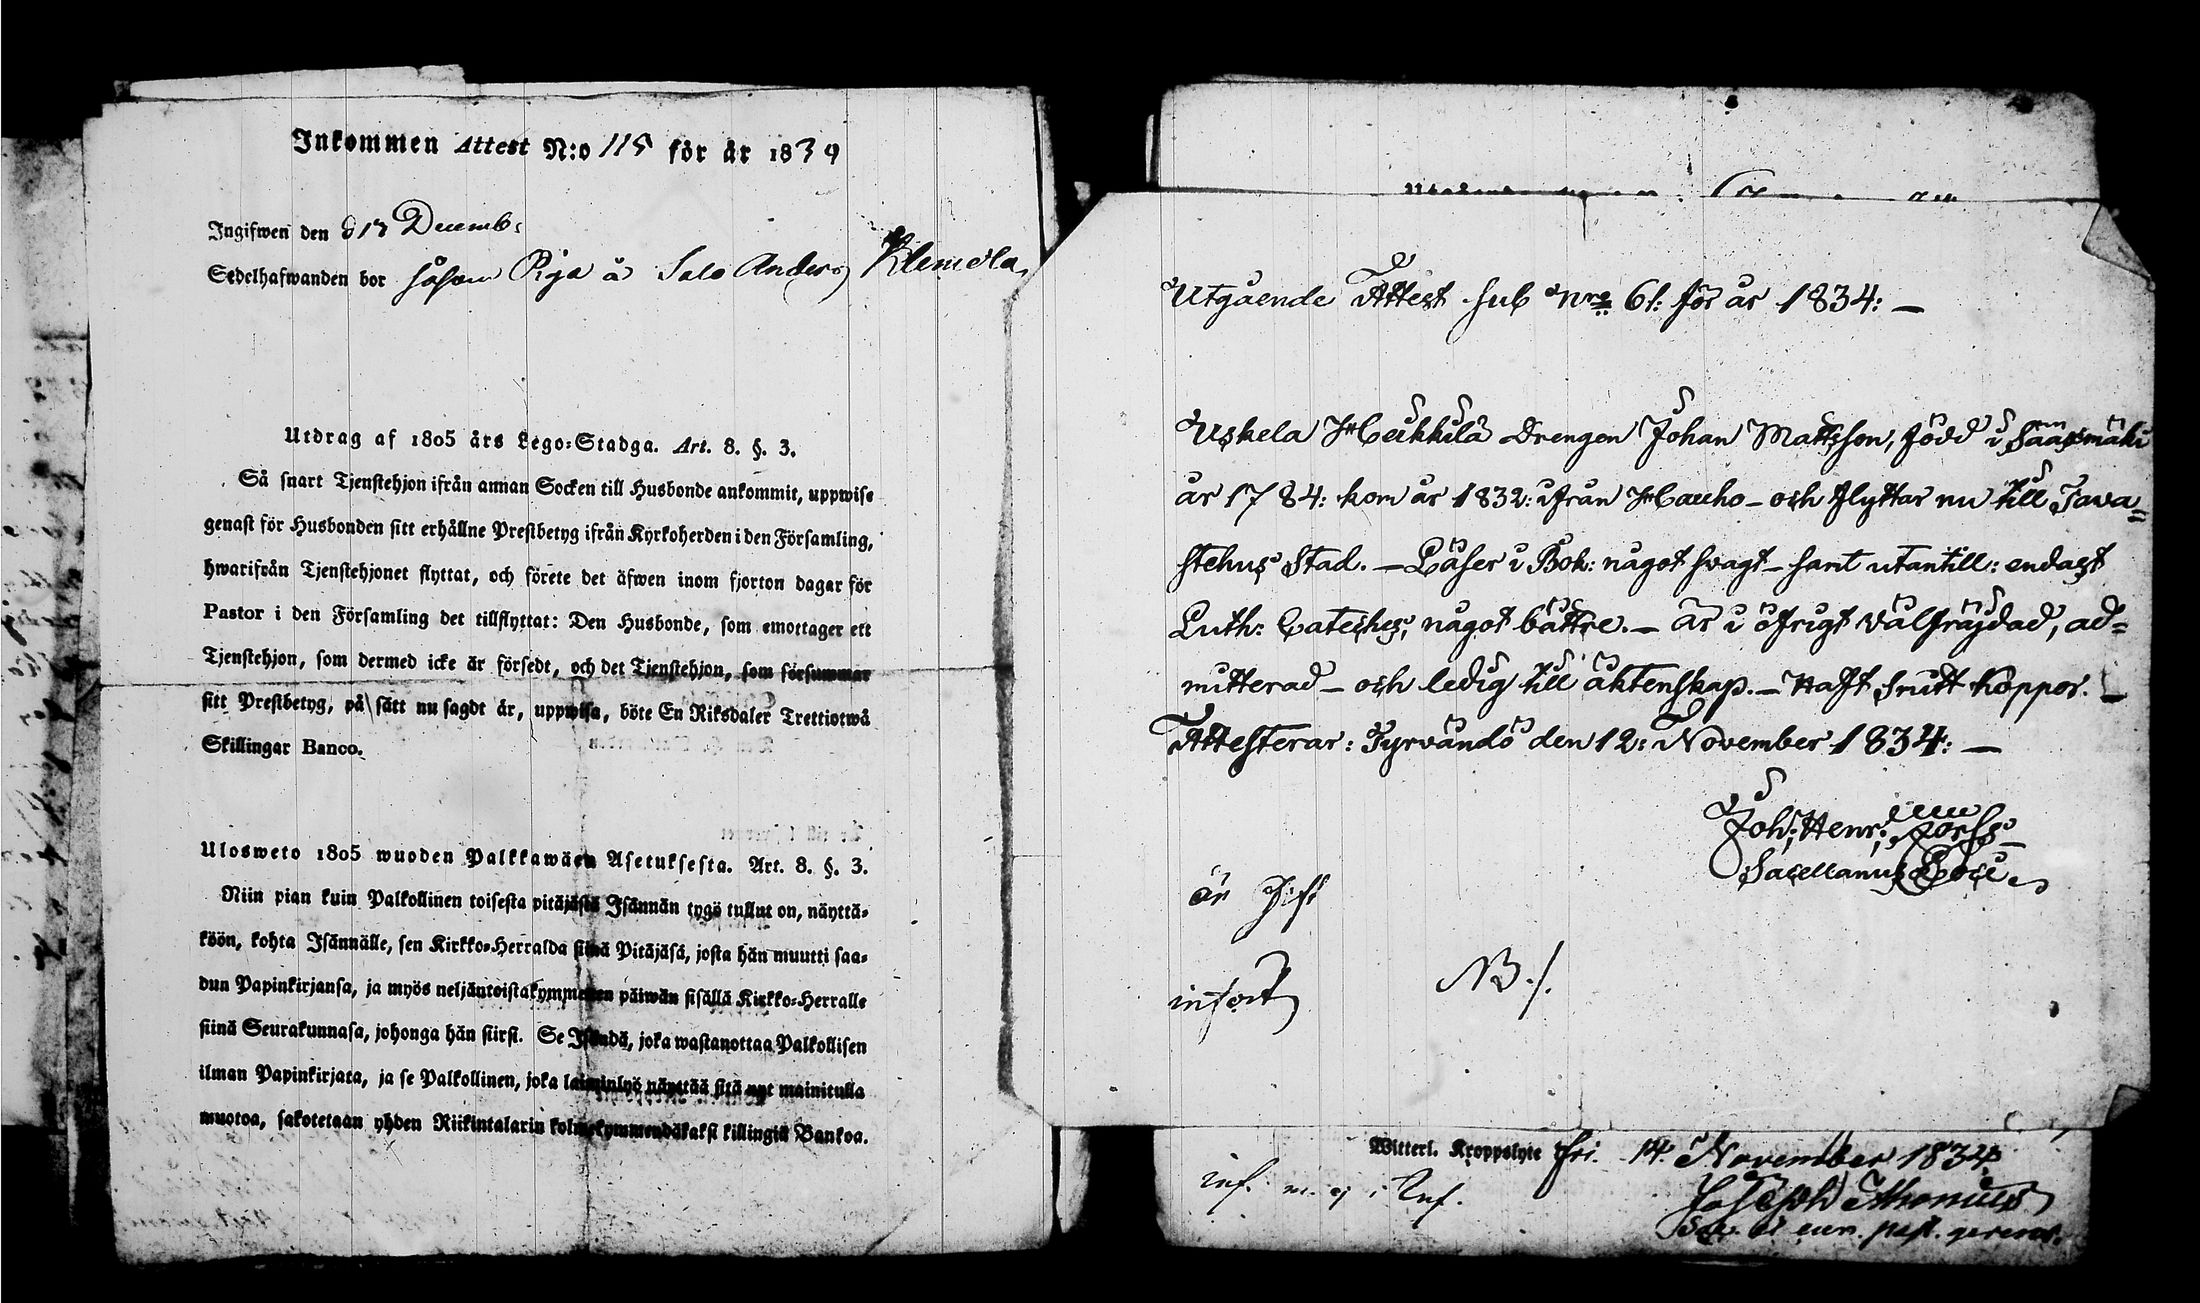 Inkommen Attest N:o 115 för år 1839
Ingifwen den d 17 Decemb:
Sedelhafwanden bor hos Johan Rya å Salo Anders Klemola
Utdrag af 1805 års Lego-Stadga. Art. 8. §. 3.
Så snart Tjenstehjon ifrån annan Socken till Husbonde ankommit, uppwise
genast för Husbonden sitt erhållne Prestbetyg ifrån Kyrkoherden i den Församling,
hwarifrån Tjenstehjonet flyttat, och förete det äfwen inom fjorton dagar för
Pastor i den Församling det tillflyttat: Den Husbonde, som emottager ett
Tjenstehjon, som dermed icke är försedt, och det Tjenstehjon, som försummar
sitt Prestbetyg, på sätt nu sagdt är, uppwisa, böte En Riksdaler Trettiotwå
Skillingar Banco.
Ulosweto 1805 wuoden Palkkawäen Asetuksesta. Art. 8. §. 3.
Niin pian kuin Palkollinen toisesta pitäjästä Isännän tygö tullut on, näyttä-
köön, kohta Isännälle, sen Kirkko-Herralda siinä Pitäjäsä, josta hän muutti saa-
dun Papinkirjansa, ja myös neljäntoistakymmenen päiwän sisällä Kirkko-Herralle
siinä Seurakunnasa, johonga hän siirsi. Se Isändä, joka wastanottaa Palkollisen
ilman Papinkirjata, ja se Palkollinen, joka laiminlyö näyttää sitä nyt mainitulla
muotoa, sakotetaan yhden Riikintalarin kolmekymmendäkaksi killingiä Bankoa.
Utgående Attest sub Nro 61: för år 1834: —
Uskela Heikkilä Drengen Johan Mattsson, född i Sääksmäki
år 1784: kom år 1832: ifrån Hauho – och flyttar nu till Tawa=
stehus Stad. — Läser i Bok: något svagt – samt utantill: endast
Luth: Cateches; något bättre. — är i öfrigt välfräjdad, ad=
mitterad – och ledig till äktenskap. — Haft snitt koppor. —
Attesterar: Tyrvändö den 12: November 1834: —
Joh: Henr:
Sacellanus Loci
är gift
infört
NB ./.
Witterl. Kroppslyte fri. 14. November 1834
inf. m. ej i Inf.
Joseph